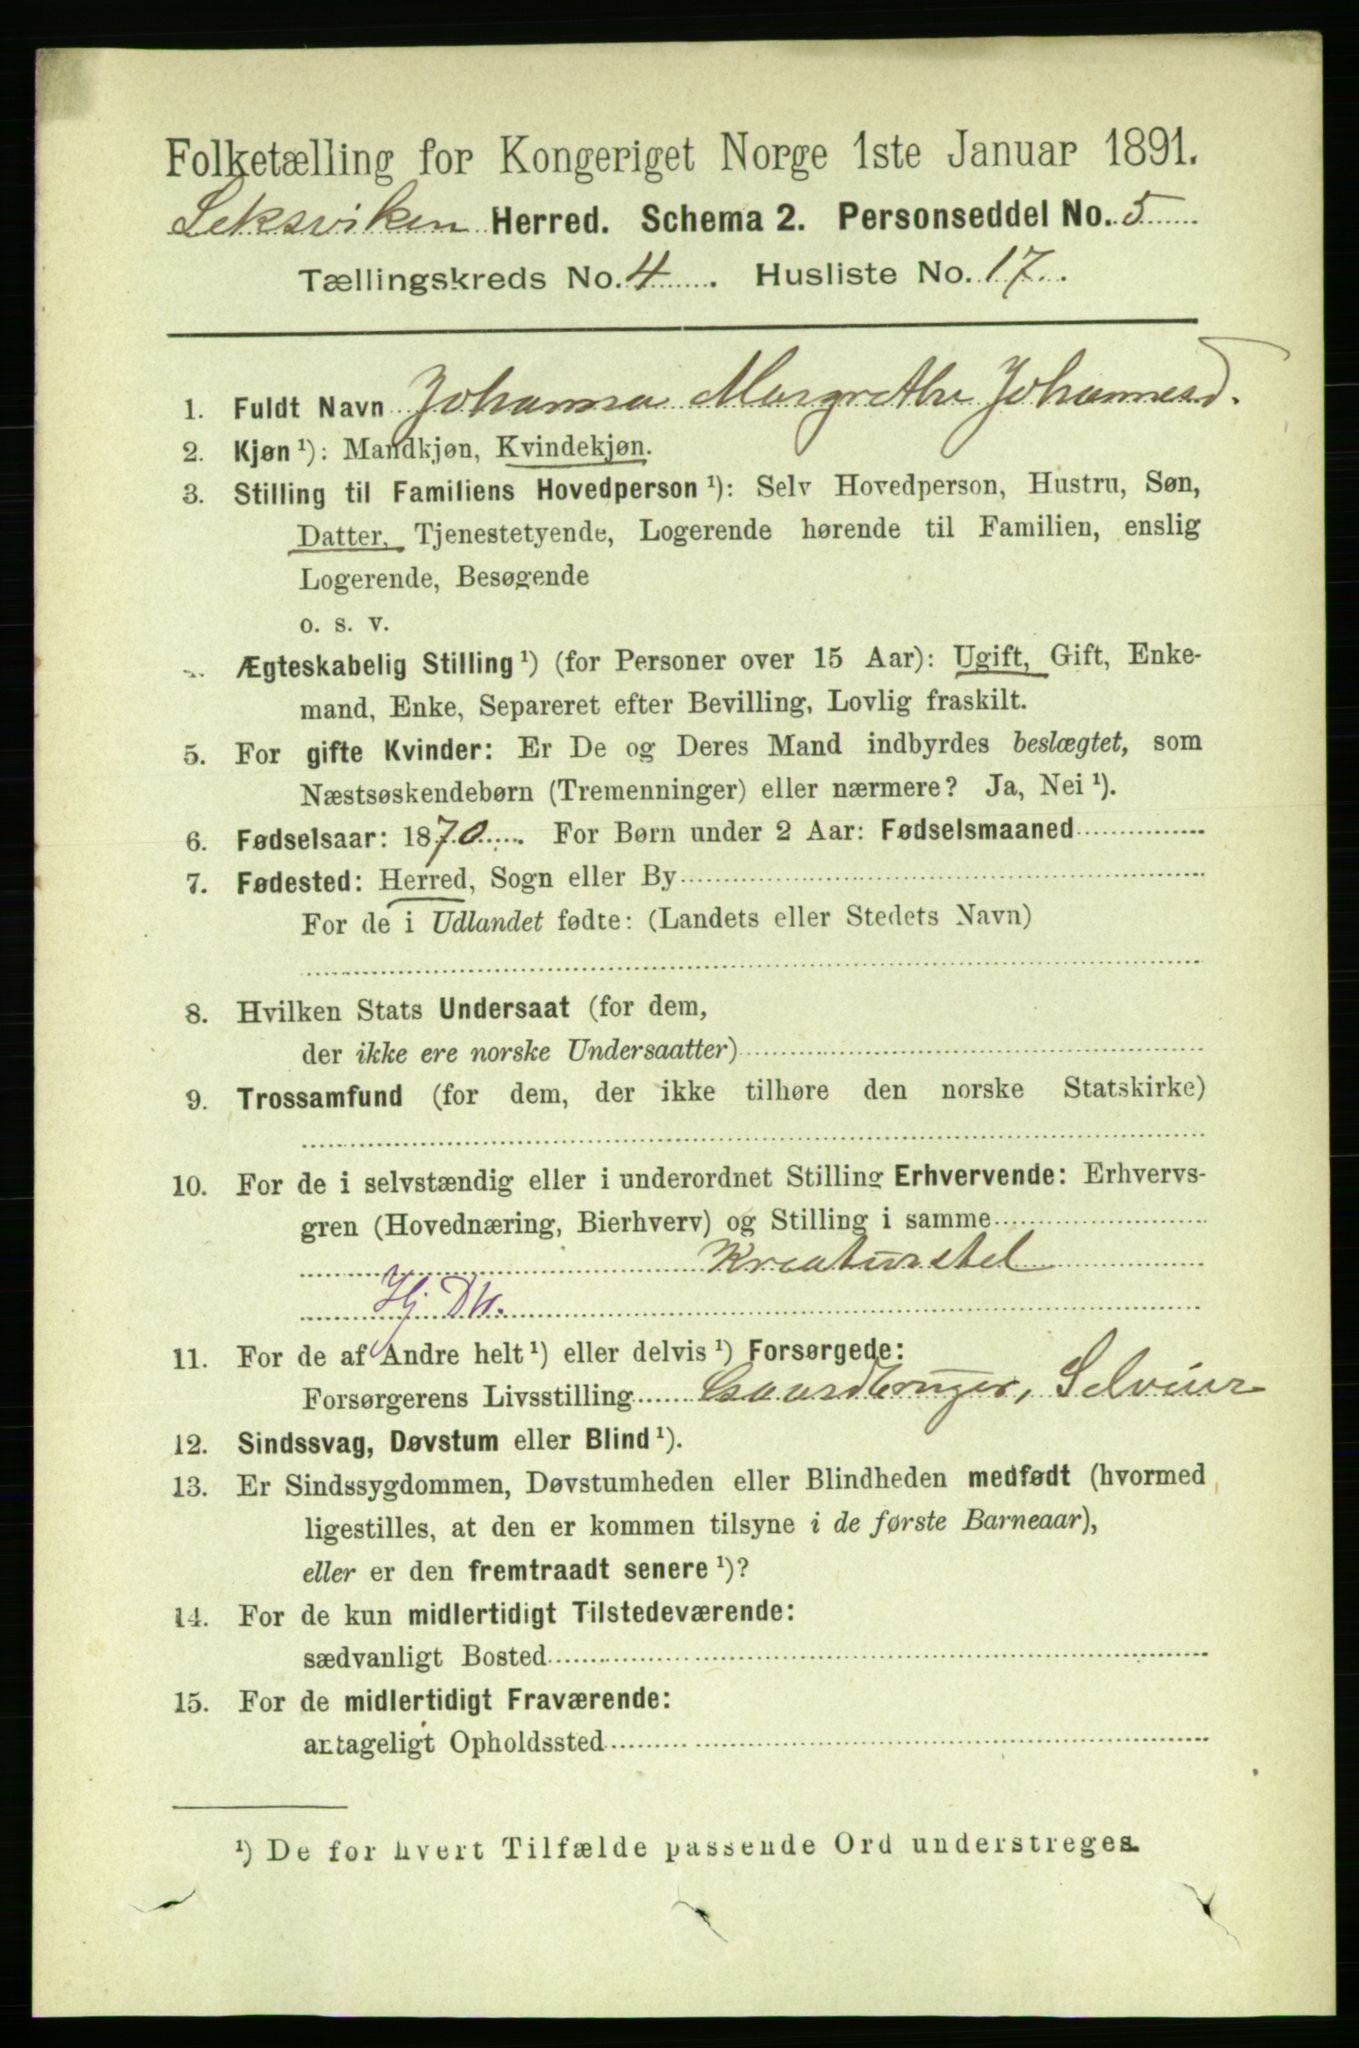 Folketælling for Kongeriget Norge 1ste Januar 1891.
Leksviken Herred. Schema 2. Personseddel No. 5
Tællingskreds No. 4. Husliste No. 17.
1. Fuldt Navn Johanna Margrethe Johannesd.
2. Kjøn ¹): Mandkjøn, Kvindekjøn.
3. Stilling til Familiens Hovedperson ¹): Selv Hovedperson, Hustru, Søn,
Datter, Tjenestetyende, Logerende hørende til Familien, enslig
Logerende, Besøgende
o. s. v.
Ægteskabelig Stilling ¹) (for Personer over 15 Aar): Ugift, Gift, Enke-
mand, Enke, Separeret efter Bevilling, Lovlig fraskilt.
5. For gifte Kvinder: Er De og Deres Mand indbyrdes beslægtet, som
Næstsøskendebørn (Tremenninger) eller nærmere? Ja, Nei ¹).
6. Fødselsaar: 1870. For Børn under 2 Aar: Fødselsmaaned
7. Fødested: Herred, Sogn eller By
For de i Udlandet fødte: (Landets eller Stedets Navn)
8. Hvilken Stats Undersaat (for dem,
der ikke ere norske Undersaatter)
9. Trossamfund (for dem, der ikke tilhøre den norske Statskirke)
10. For de i selvstændig eller i underordnet Stilling Erhvervende: Erhvervs-
gren (Hovednæring, Bierhverv) og Stilling i samme
Kreaturstel
Hj. Dtr.
11. For de af Andre helt ¹) eller delvis ¹) Forsørgede:
Forsørgerens Livsstilling Gaardbruger, Selveier
12. Sindssvag, Døvstum eller Blind ¹).
13. Er Sindssygdommen, Døvstumheden eller Blindheden medfødt (hvormed
ligestilles, at den er kommen tilsyne i de første Barneaar),
eller er den fremtraadt senere ¹)?
14. For de kun midlertidigt Tilstedeværende:
sædvanligt Bosted
15. For de midlertidigt Fraværende:
antageligt Opholdssted
¹) De for hvert Tilfælde passende Ord understreges.